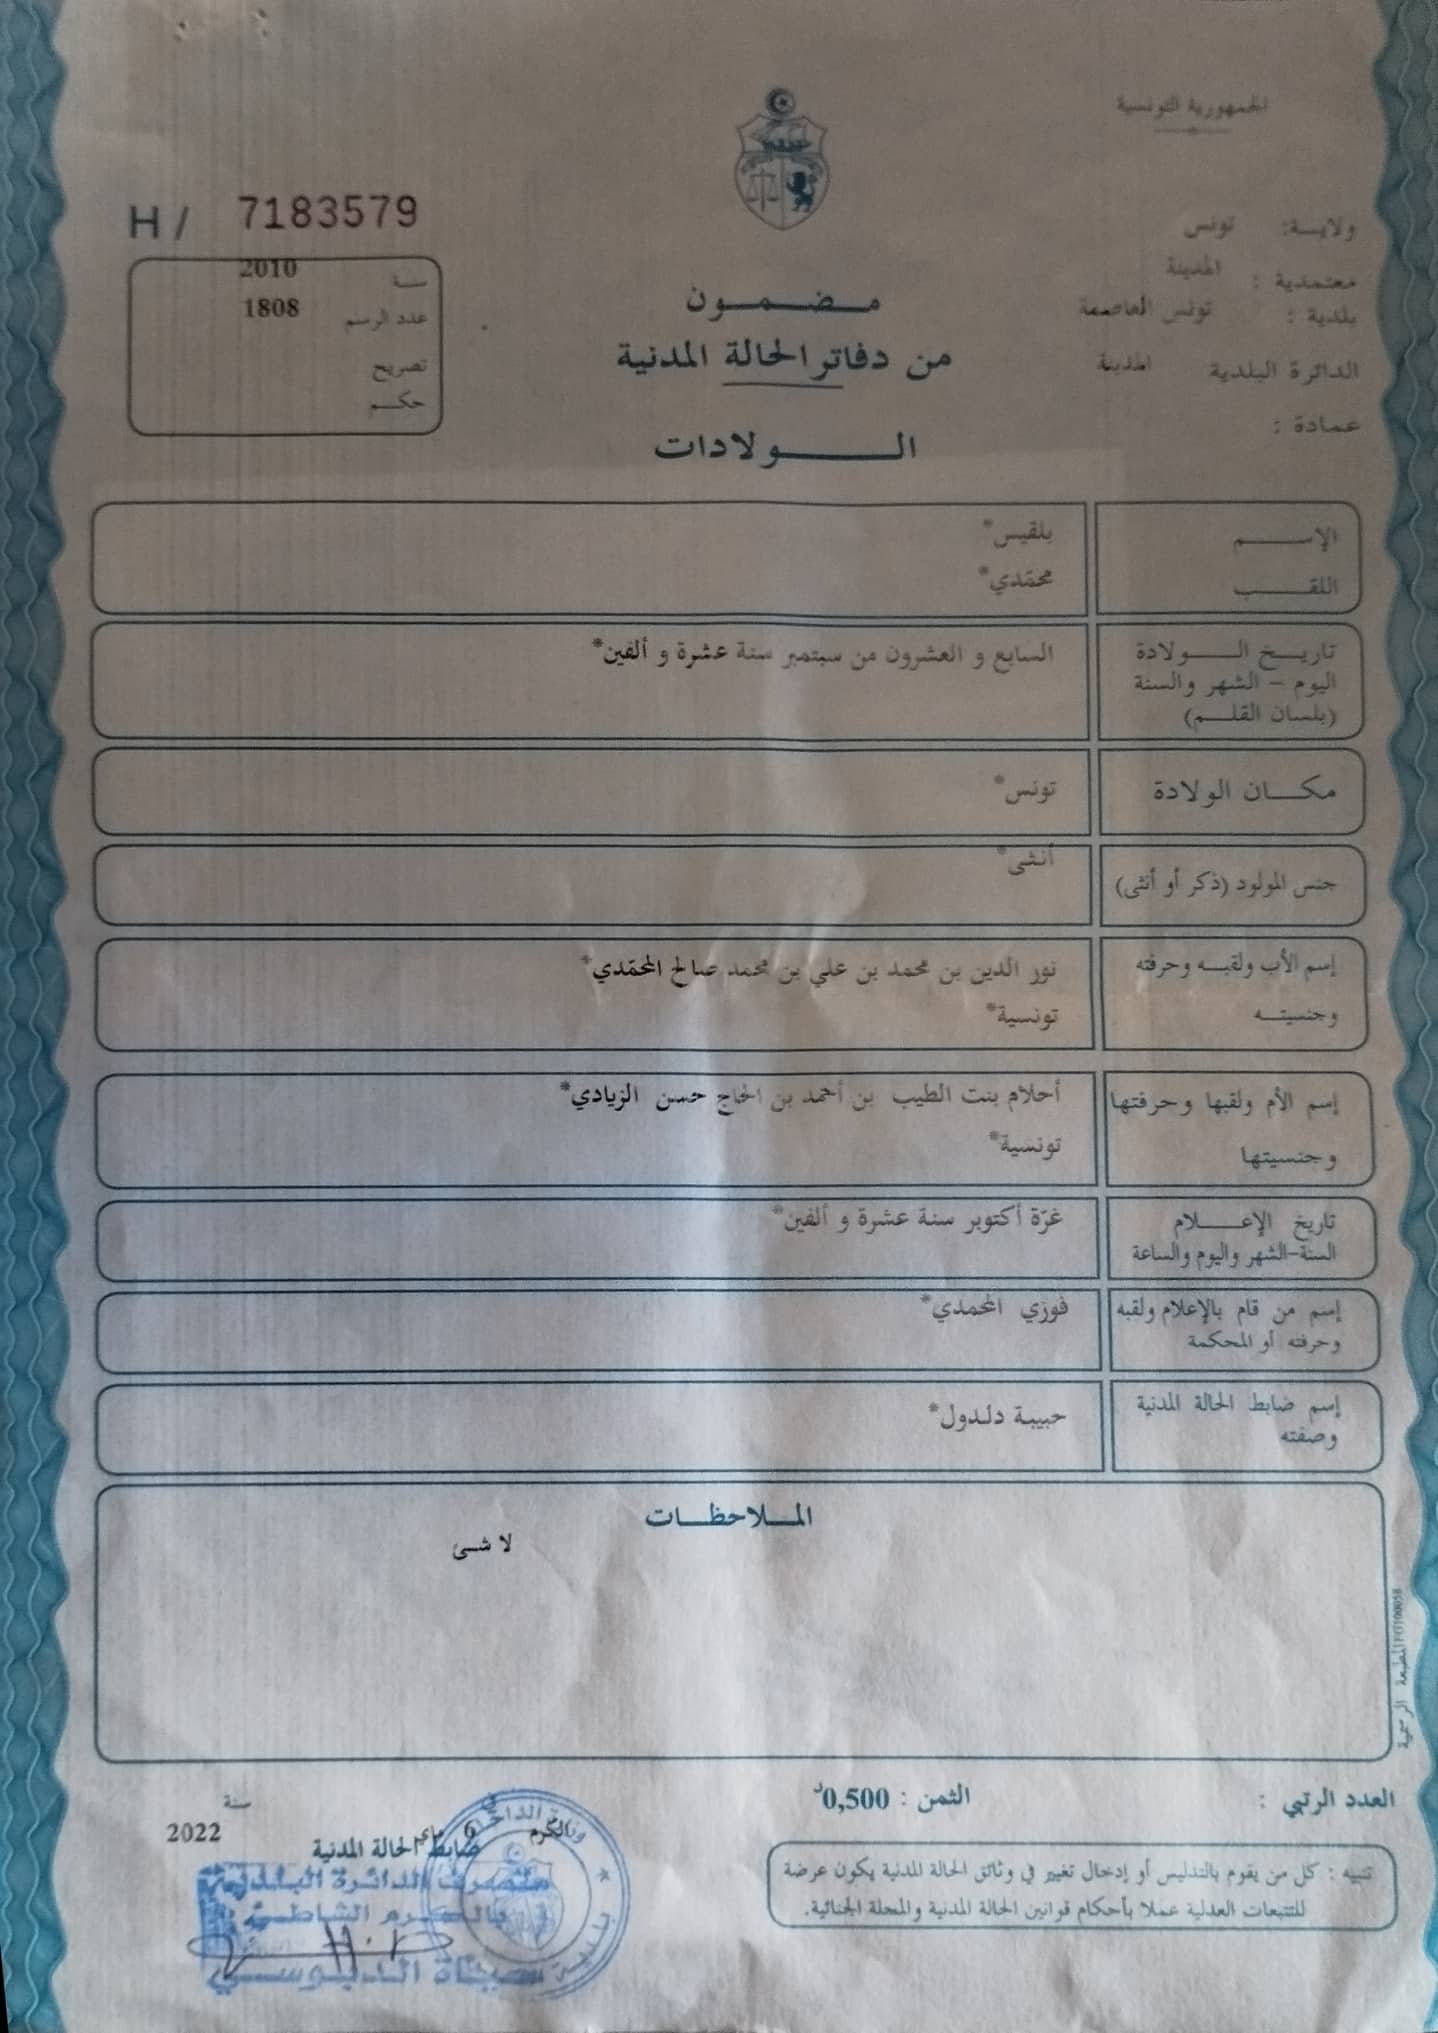 الجمهورية التونسية
H / 7183579
ولايــة: تونس
معتمدية : المدينة
بلدية : تونس العاصمة
الدائرة البلدية المدينة
عمادة :
سنة 2010
عدد الرسم 1808
تصريح
حكم
مضمون
من دفاتر الحالة المدنية
الولادات
الإسم بلقيس*
اللقب محمّدي*
تاريخ الولادة السابع و العشرون من سبتمبر سنة عشرة و ألفين*
اليوم - الشهر والسنة
(بلسان القلم)
مكان الولادة تونس*
جنس المولود (ذكر أو أنثى) أنثى*
إسم الأب ولقبه وحرفته نور الدين بن محمد بن علي بن محمد صالح المحمّدي*
وجنسيته تونسية*
إسم الأم ولقبها وحرفتها أحلام بنت الطيب بن أحمد بن الحاج حسن الزيادي*
وجنسيتها تونسية*
تاريخ الإعلام غرّة أكتوبر سنة عشرة و ألفين*
السنة-الشهر واليوم والساعة
إسم من قام بالإعلام ولقبه فوزي المحمدي*
وحرفته أو المحكمة
إسم ضابط الحالة المدنية حبيبة دلدول*
وصفته
الملاحظات
لا شئ
المطبعة الرسمية
العدد الرتبي : الثمن : 0,500د
تنبيه : كل من يقوم بالتدليس أو إدخال تغيير في وثائق الحالة المدنية يكون عرضة
للتتبعات العدلية عملا بأحكام قوانين الحالة المدنية والمجلة الجنائية.
الكرم في 6 ماي سنة 2022
ضابط الحالة المدنية
متصرف الدائرة البلدية
بالكرم الشاطئ